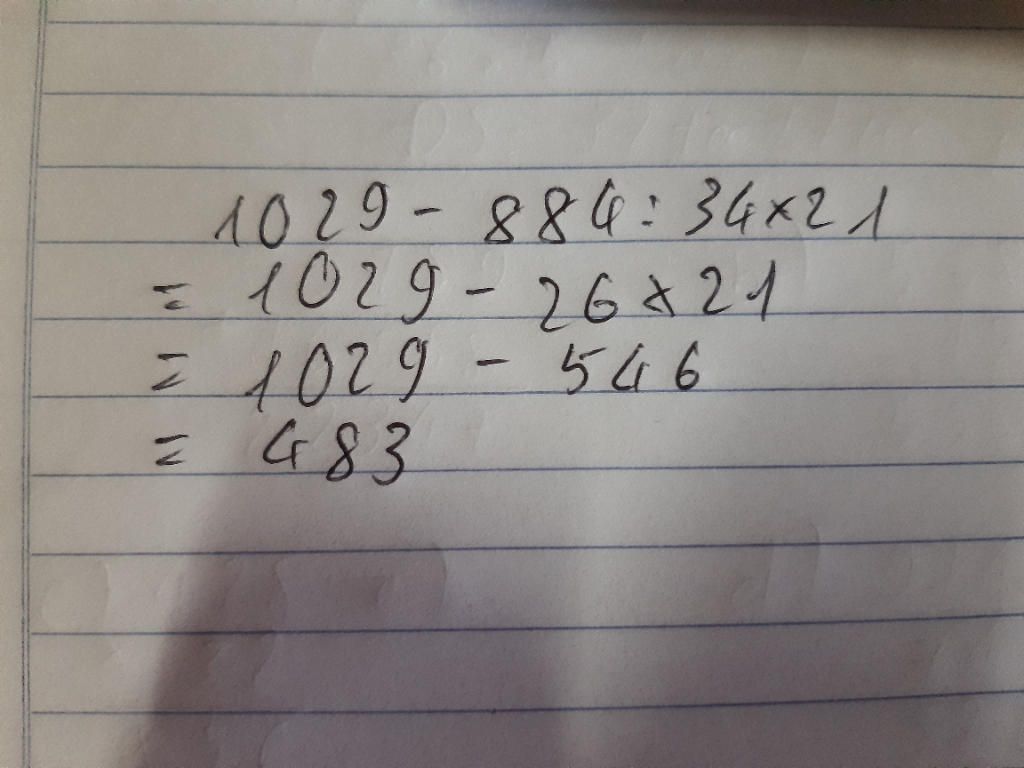 1029 - 884 : 34 × 21
= 1029 - 26 × 21
= 1029 - 546
= 483